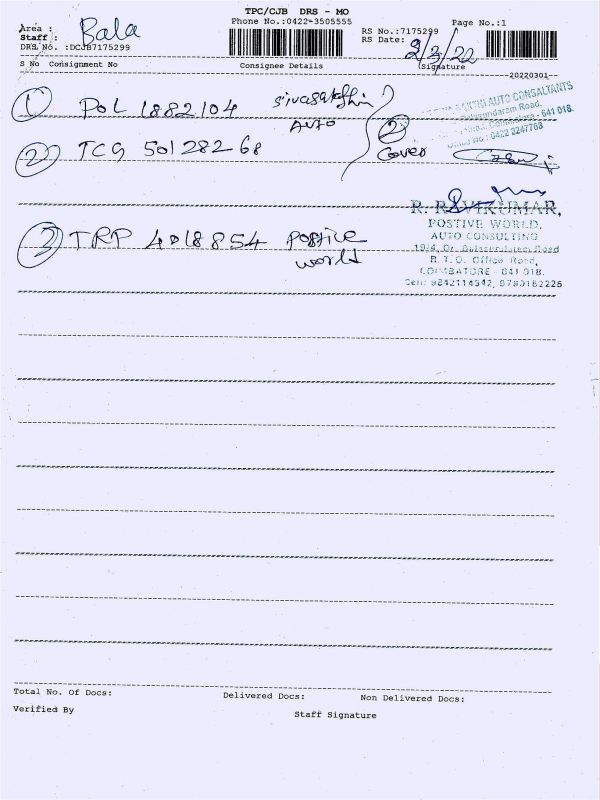 TPC/CJB DRS - MO
Phone No.:0422-3505555
Page No.:1
Area :
Staff : Bala
DRS No. :DCJB7175299
RS No.:7175299
RS Date: 2/3/22
S No Consignment No Consignee Details Signature
20220301
1 POL 1882104 Sivasakthi
AUTO
2 Cover
AUTO CONSALTANTS
Road,
641 018.
0422 2247768
2 TCG 50128268
R. RAVIKUMAR,
POSTIVE WORLD,
AUTO CONSULTING
3 TRP 4018854 Postice
world
19/4, Dr. Balasundaram Road
R.T.O. Office Road,
COIMBATORE - 641 018.
Cell: 9842114342, 9790162226
Total No. Of Docs: Delivered Docs: Non Delivered Docs:
Verified By Staff Signature